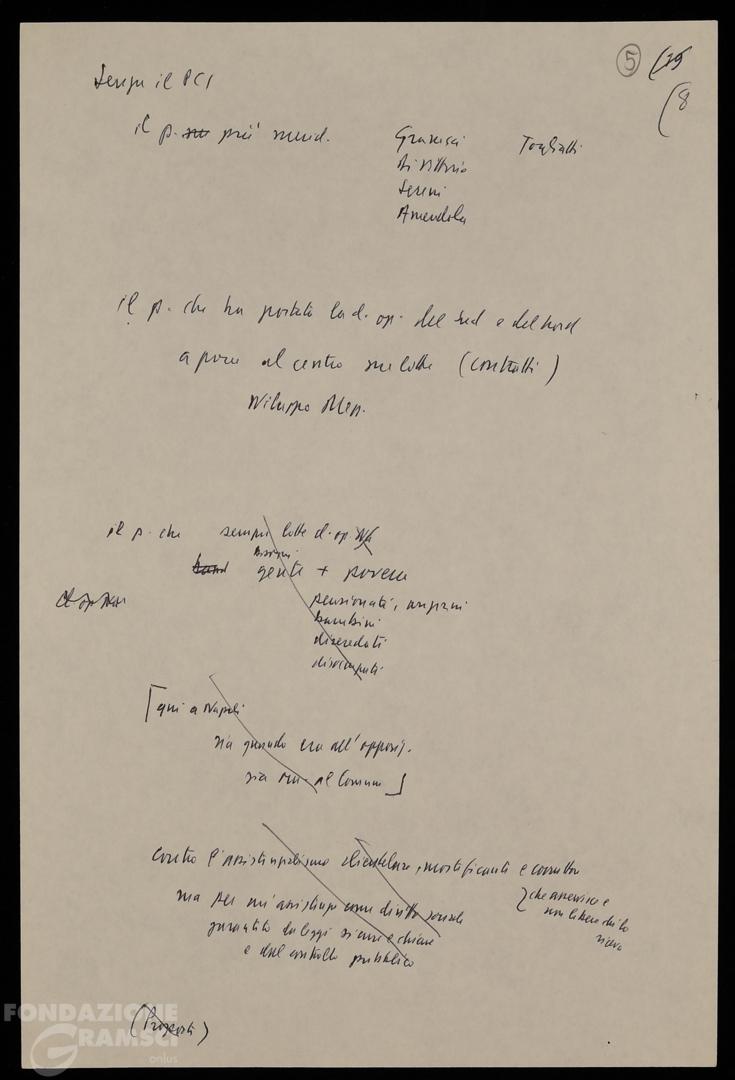 5 (29
(8
Sempre il PCI
il p. più merid.
Gramsci Togliatti
Di Vittorio
Sereni
Amendola
il p. che ha portato la cl. op. del Sud e del Nord
a porre al centro sue lotte (contratti)
sviluppo Mezz.
il p. che sempre lotte cl. op.
bisogni
gente + povera
pensionati, anziani
bambini
diseredati
disoccupati
[qui a Napoli
sia quando era all'opposiz.
sia ora al Comune]
Contro l'assistenzialismo clientelare, mortificante e corruttore
ma per un'assistenza come diritto sociale
garantito da leggi sicure e chiare
e dal controllo pubblico
} che asservisce e
non libera chi lo
riceve
(Proposte)
FONDAZIONE
GRAMSCI
onlus